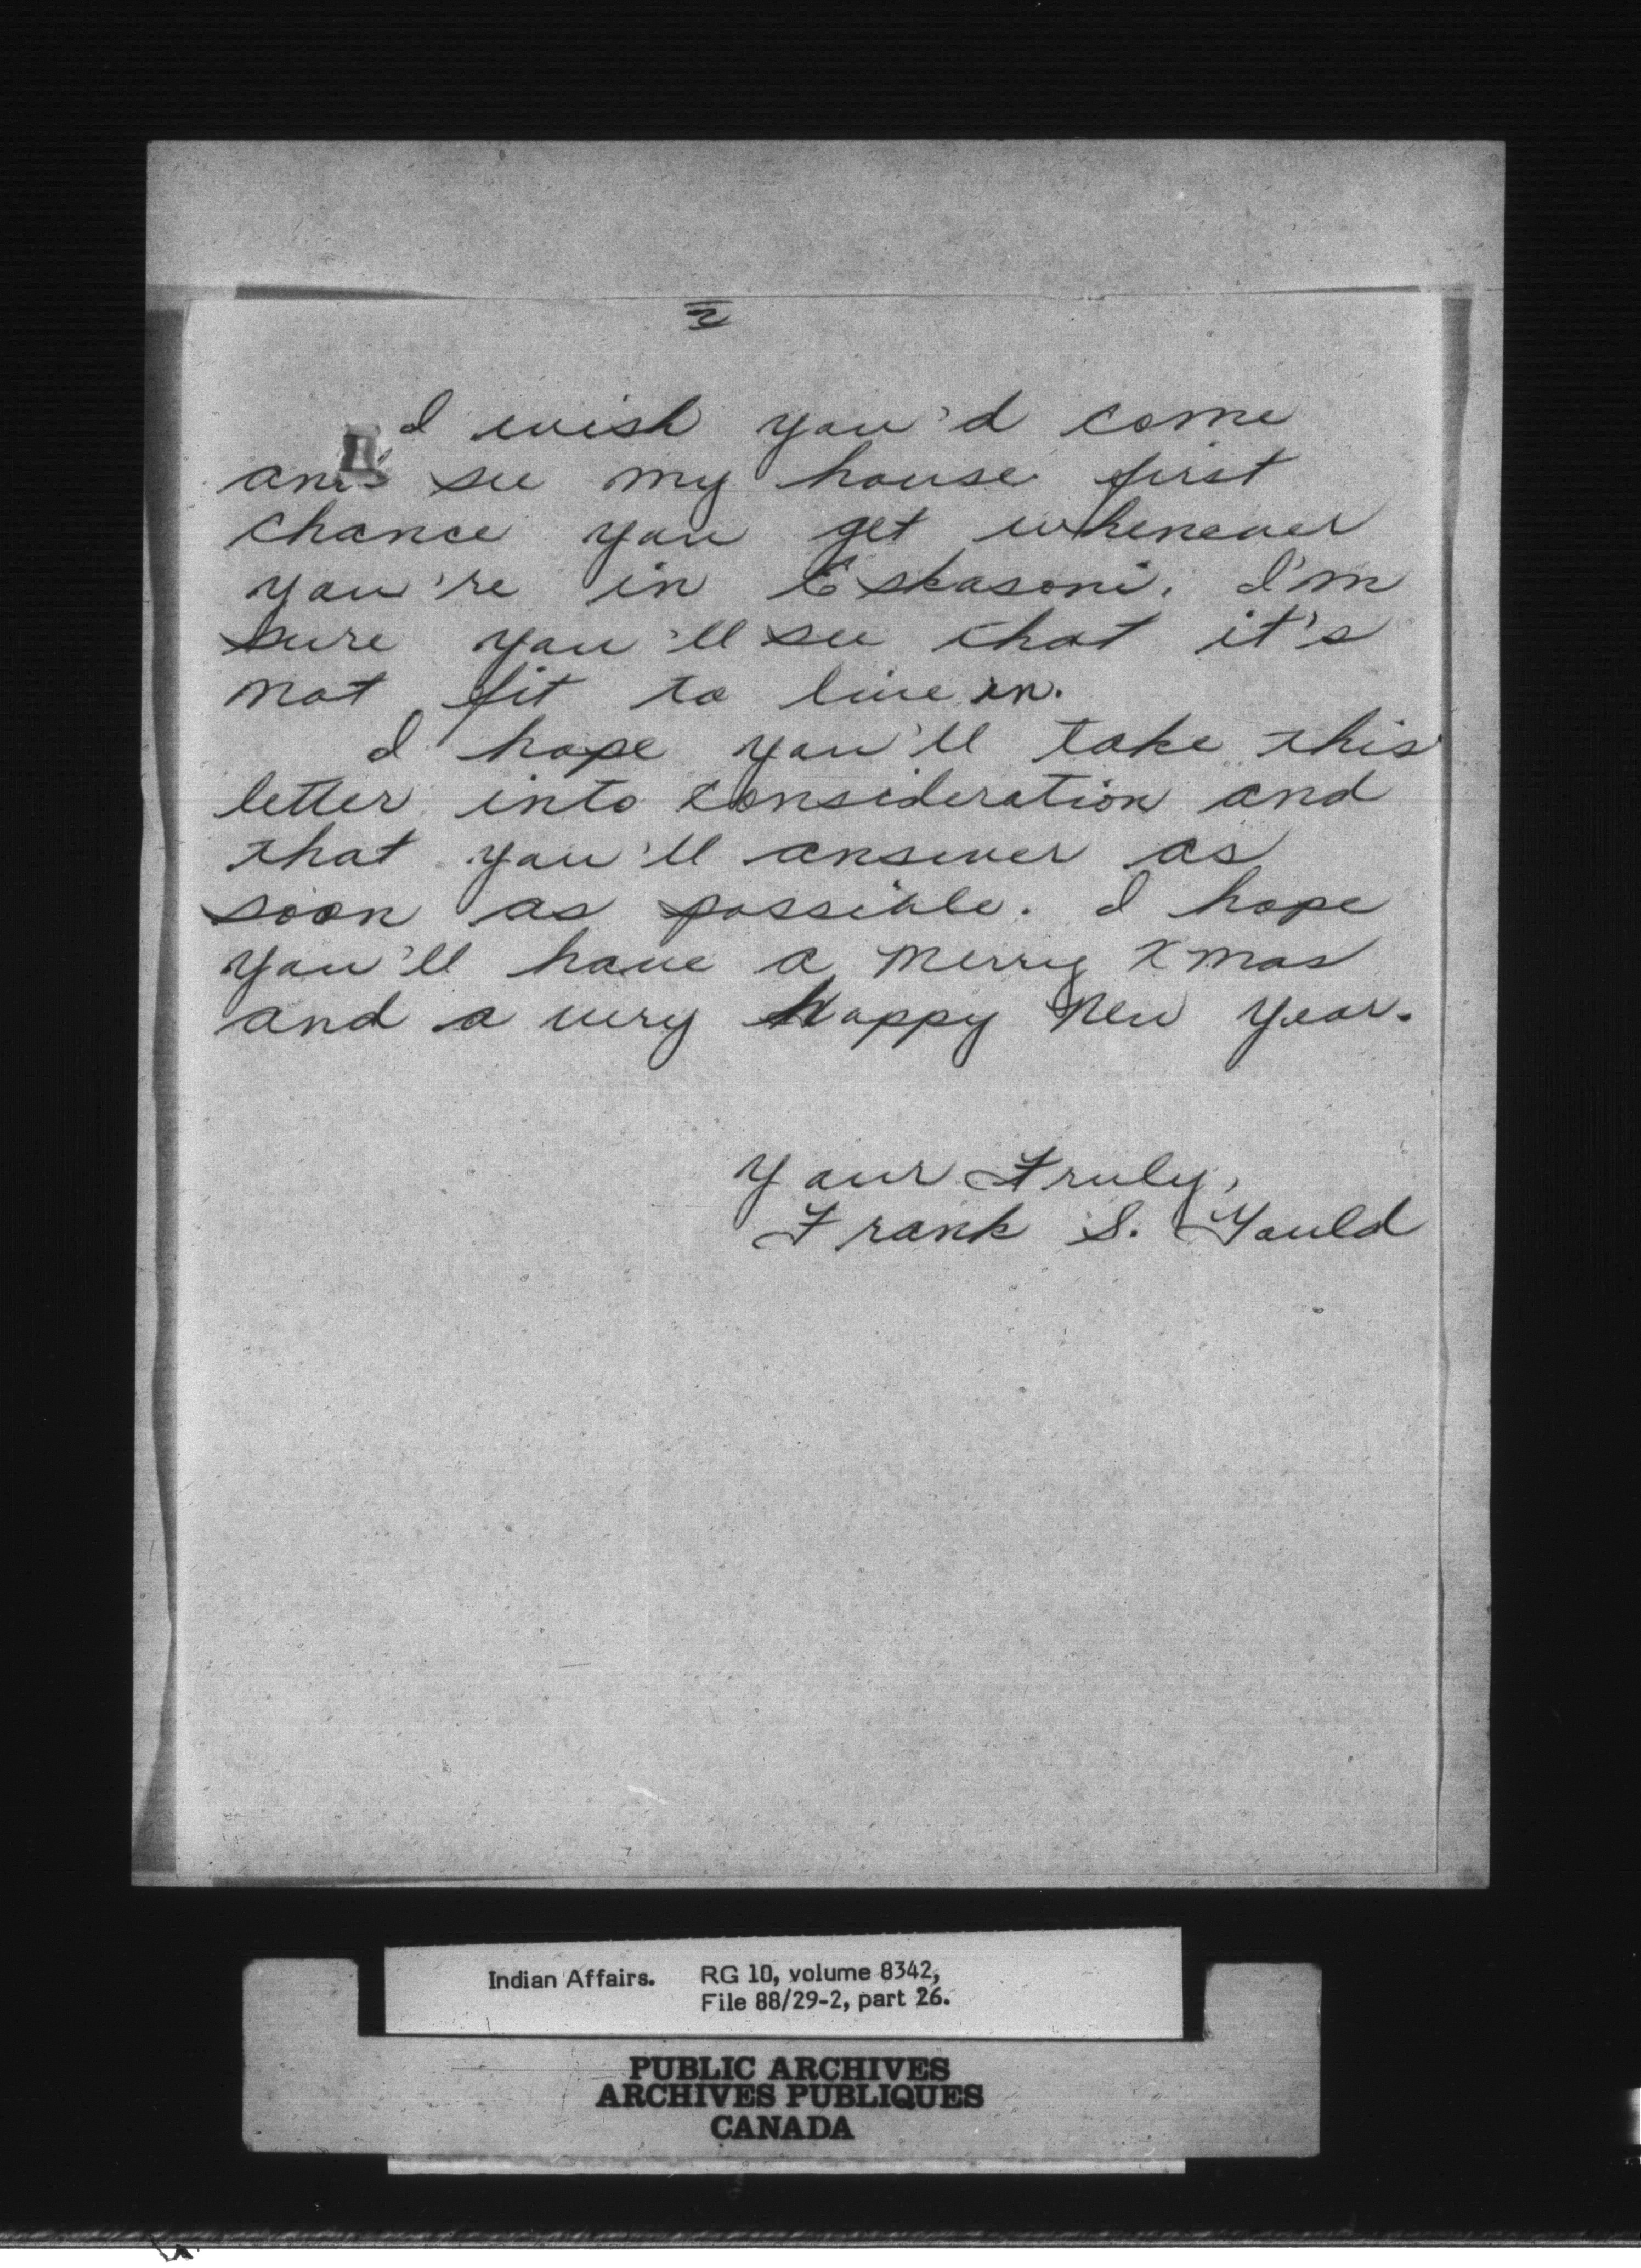 2
I wish you'd come
and see my house first
chance you get whenever
you're in Eskasoni. I'm
sure you'll see that it's
not fit to live in.
I hope you'll take this
letter into consideration and
that you'll answer as
soon as possible. I hope
you'll have a Merry Xmas
and a very Happy New Year.
Your Truly,
Frank S. Gould
Indian Affairs. RG 10, volume 8342,
File 88/29-2, part 26.
PUBLIC ARCHIVES
ARCHIVES PUBLIQUES
CANADA